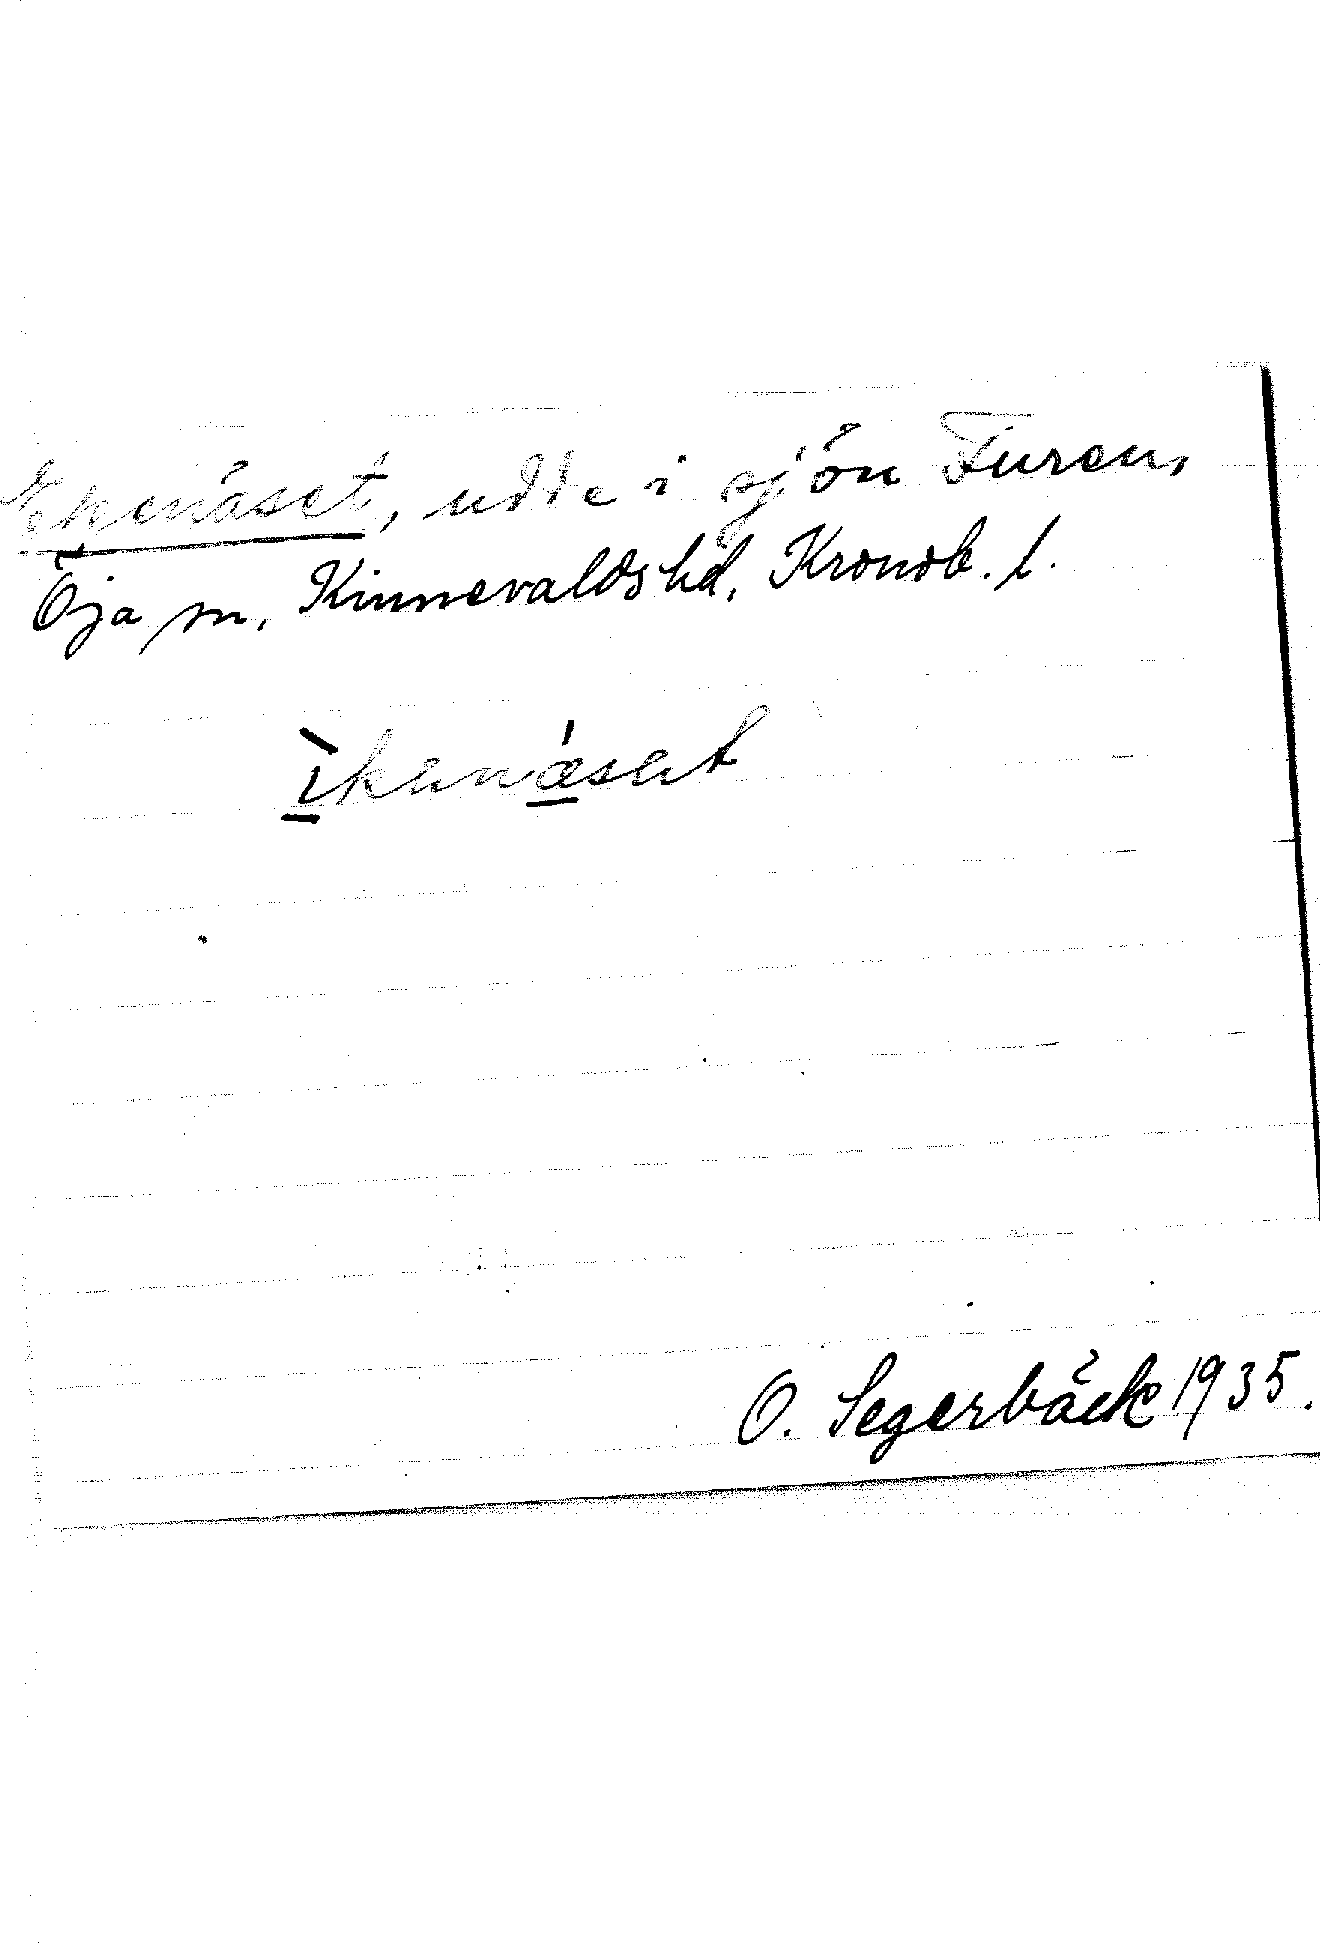 Ekenäset, udde i sjön Furen,
Öja sn, Kinnevalds hd, Kronob. l.
ìkenǽset
O. Segerbäck 1935.